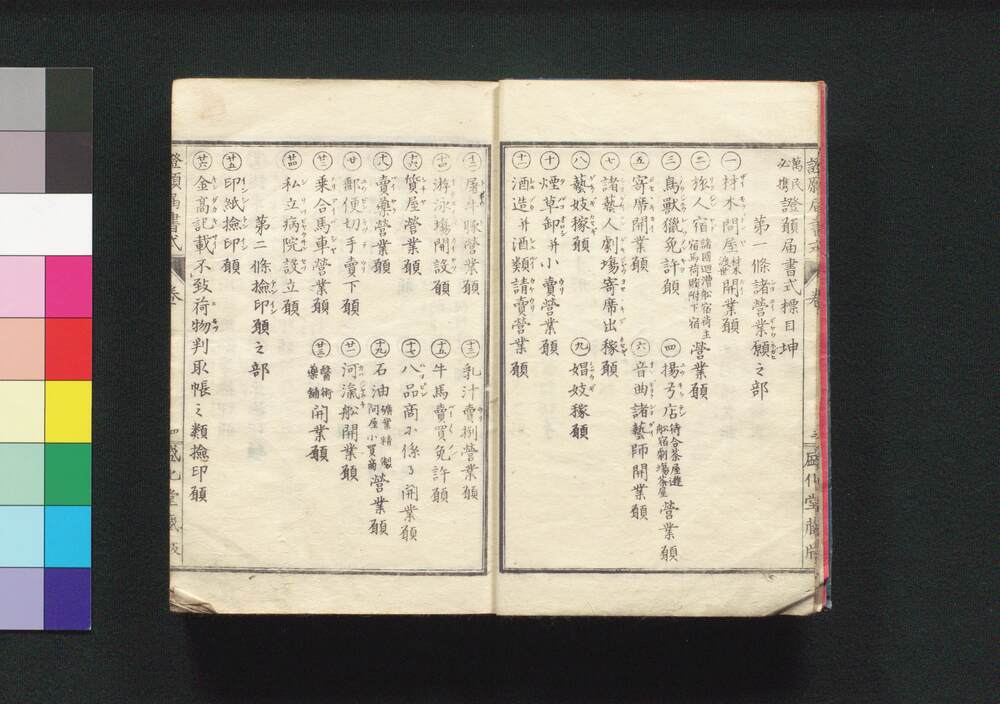 萬民必携 證願届書式標目坤
第一條諸營業願之部
一 材木問屋 材木渡世 開業願
二 旅人宿 諸國廻漕舩宿荷主宿馬荷賤附下宿 營業願
三 鳥獸獵免許願
四 揚弓店 待合茶屋遊舩宿劇場茶屋 營業願
五 寄席開業願
六 音曲諸藝師開業願
七 諸藝人劇場寄席出稼願
八 藝妓稼願
九 娼妓稼願
十 煙草卸并小賣營業願
十一 酒造并酒類請賣營業願
十二 屠牛豚營業願
十三 乳汁賣捌營業願
十四 游泳場開設願
十五 牛馬賣買免許願
十六 質屋營業願
十七 八品商ニ係ル開業願
十八 賣藥營業願
十九 石油 礦業精製問屋小買商 營業願
廿 郵便切手賣下願
廿一 河滊舩開業願
廿二 乘合馬車營業願
廿三 醫術藥鋪 開業願
廿四 私立病院設立願
第二條撿印願之部
廿五 印紙撿印願
廿六 金高記載不致荷物判取帳之類撿印願
證願届書式